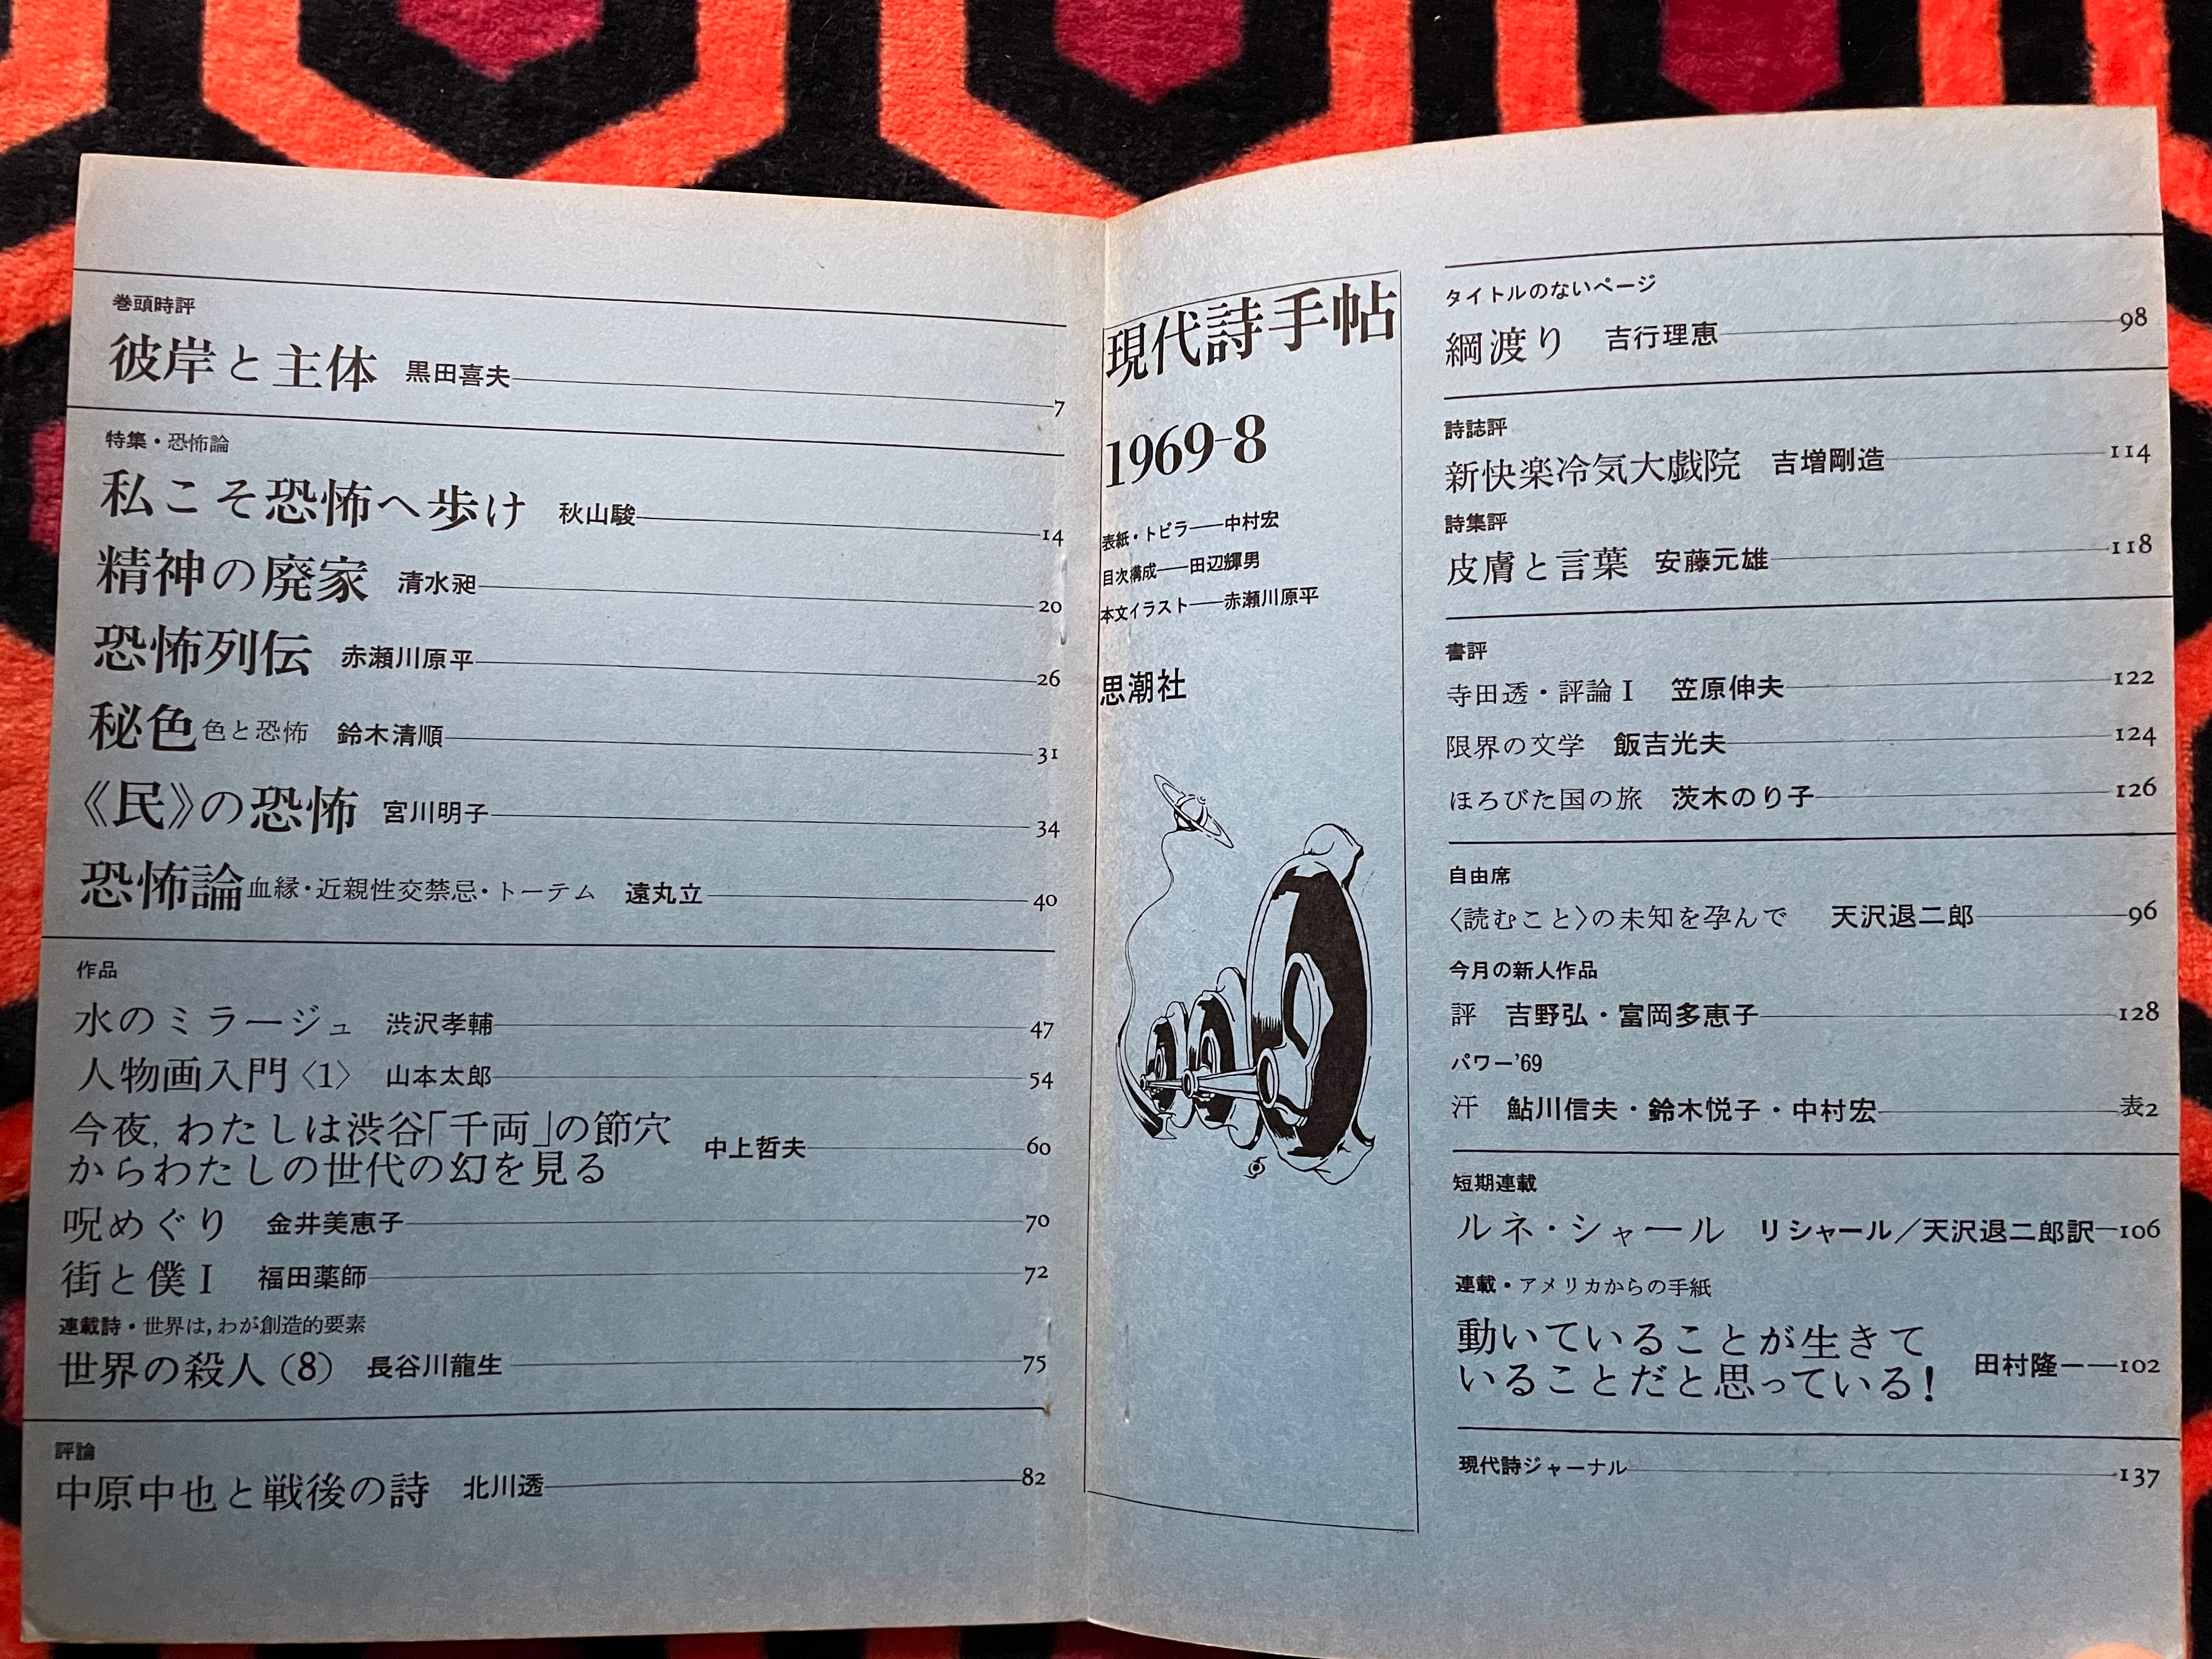 巻頭時評
彼岸と主体 黒田喜夫 7
特集・恐怖論
私こそ恐怖へ歩け 秋山駿 14
精神の廃家 清水昶 20
恐怖列伝 赤瀬川原平 26
秘色 色と恐怖 鈴木清順 31
《民》の恐怖 宮川明子 34
恐怖論 血縁・近親性交禁忌・トーテム 遠丸立 40
作品
水のミラージュ 渋沢孝輔 47
人物画入門〈1〉 山本太郎 54
今夜，わたしは渋谷「千両」の節穴
からわたしの世代の幻を見る 中上哲夫 60
呪めぐり 金井美恵子 70
街と僕Ⅰ 福田薬師 72
連載詩・世界は，わが創造的要素
世界の殺人（8） 長谷川龍生 75
評論
中原中也と戦後の詩 北川透 82
現代詩手帖
1969-8
表紙・トビラ——中村宏
目次構成——田辺輝男
本文イラスト——赤瀬川原平
思潮社
タイトルのないページ
綱渡り 吉行理恵 98
詩誌評
新快楽冷気大戯院 吉増剛造 114
詩集評
皮膚と言葉 安藤元雄 118
書評
寺田透・評論Ⅰ 笠原伸夫 122
限界の文学 飯吉光夫 124
ほろびた国の旅 茨木のり子 126
自由席
〈読むこと〉の未知を孕んで 天沢退二郎 96
今月の新人作品
評 吉野弘・富岡多恵子 128
パワー’69
汗 鮎川信夫・鈴木悦子・中村宏 表2
短期連載
ルネ・シャール リシャール／天沢退二郎訳 106
連載・アメリカからの手紙
動いていることが生きて
いることだと思っている！ 田村隆一 102
現代詩ジャーナル 137